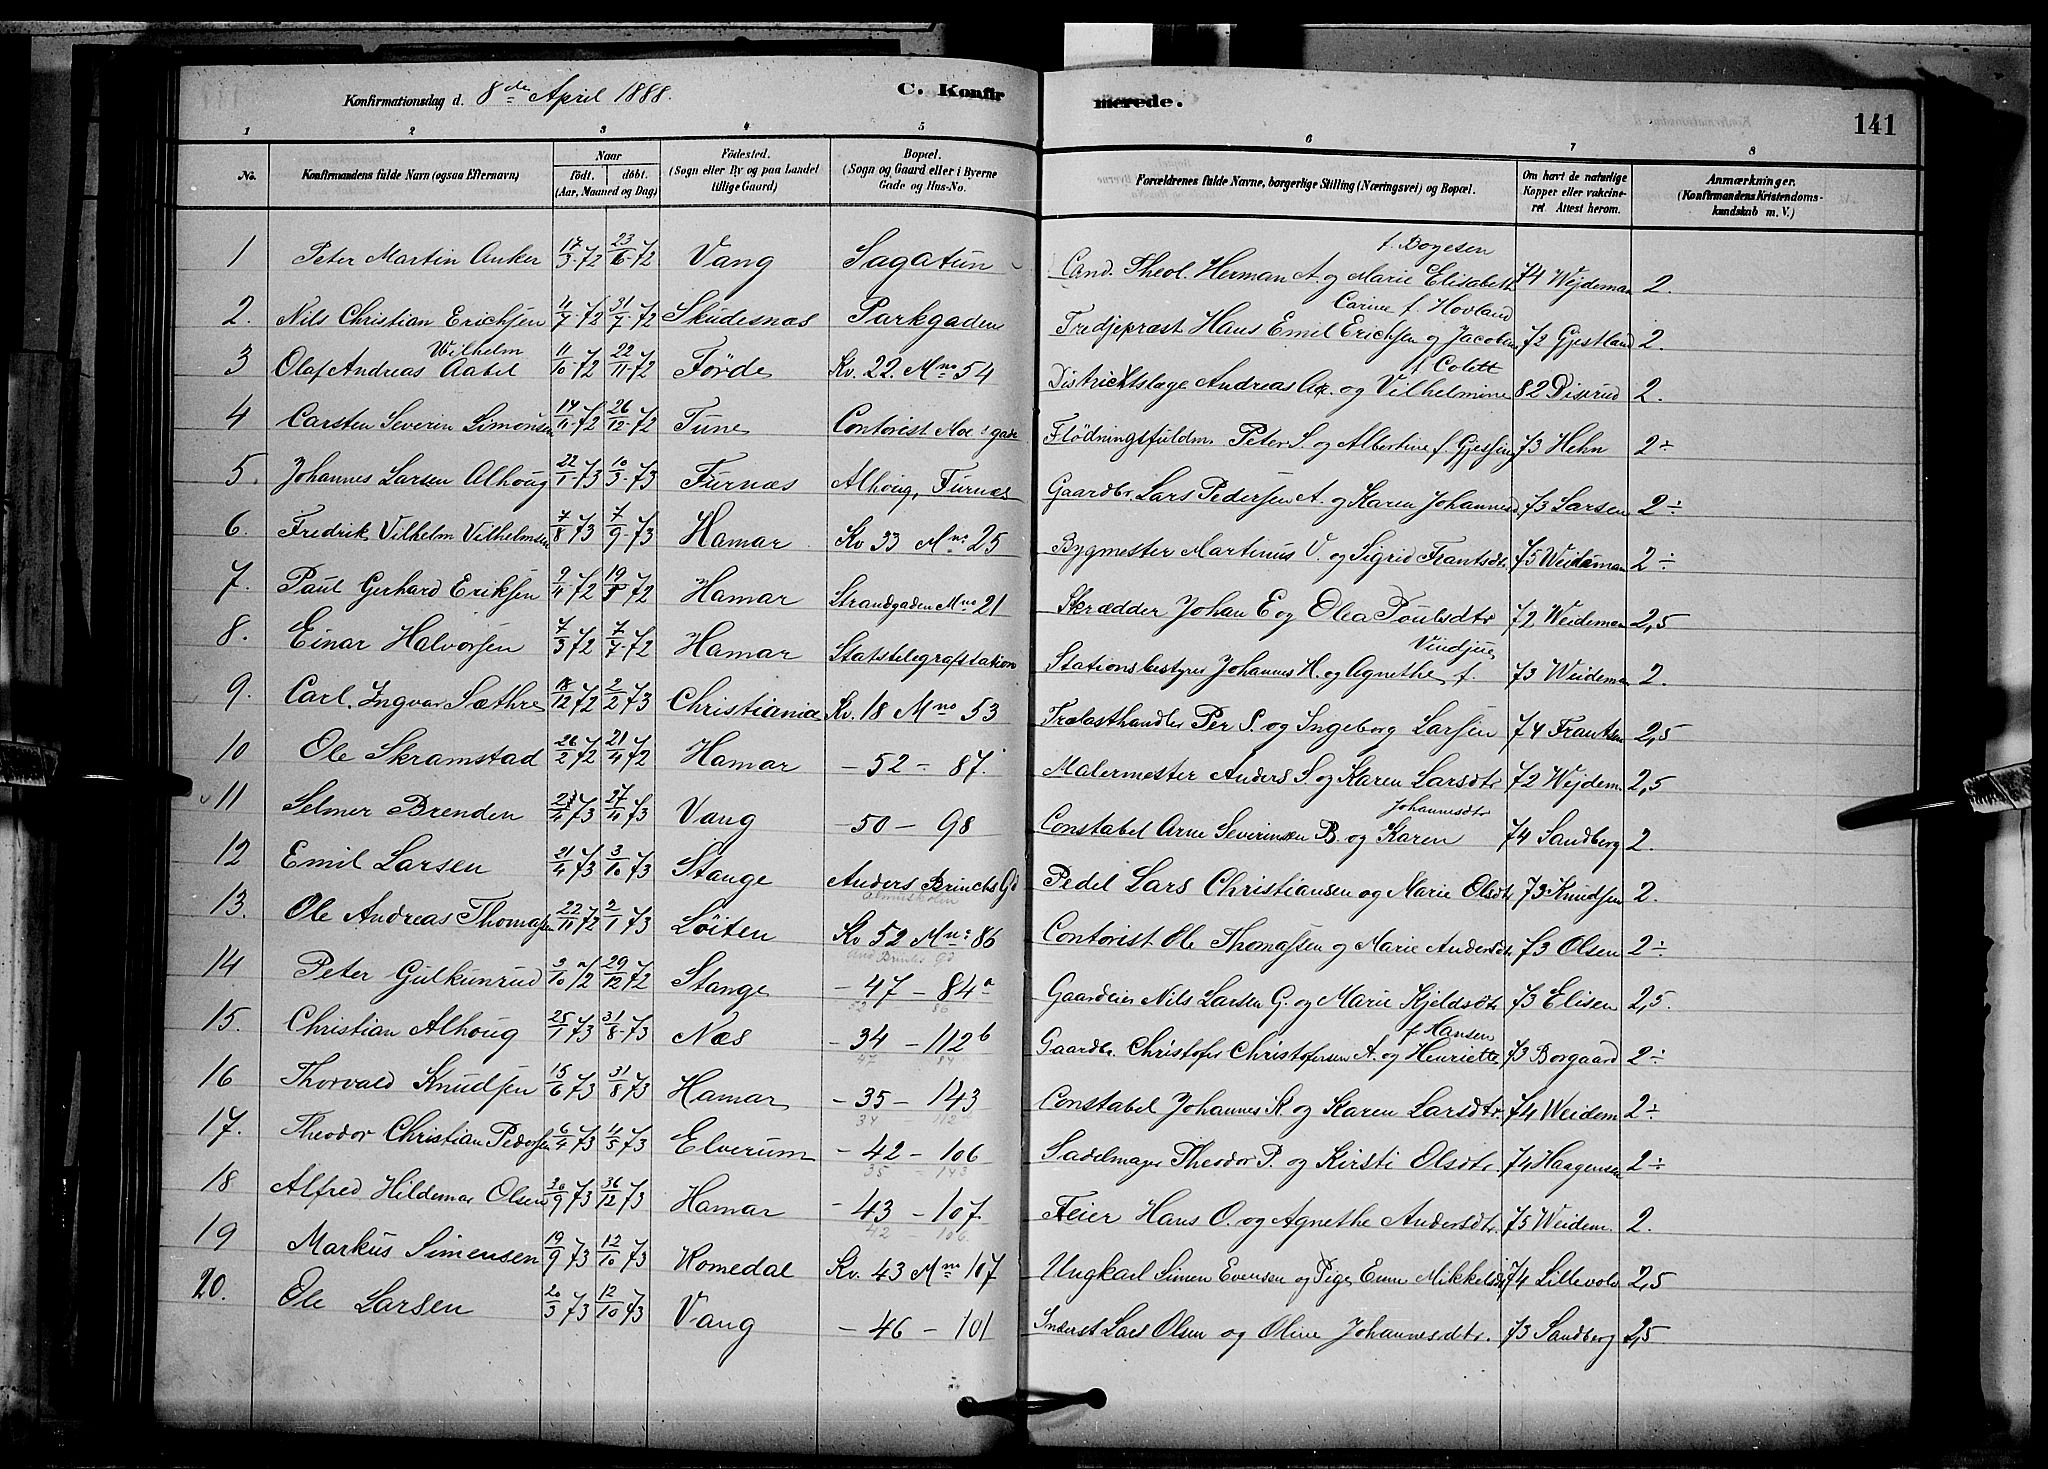 Konfirmationsdag d. 8de April 1888. C. Konfir merede. 141
1 2 3 4 5 6 7 8
No. Konfirmandens fulde Navn (ogsaa Efternavn) Naar födt. döbt. (Aar, Maaned og Dag) Födested. (Sogn eller By og paa Landet tillige Gaard) Bopæl. (Sogn og Gaard eller i Byerne Gade og Hus-No. Forældrenes fulde Navne, borgerlige Stilling (Næringsvei) og Bopæl. Om havt de naturlige Kopper eller vakcineret. Attest herom. Anmærkninger. (Konfirmandens Kristendomskundskab m. V.)
1 Peter Martin Anker 17/3 72 23/6 72 Vang Sagatun Cand. Theol. Herman A. og Marie Elisabeth f. Boyesen 74 Wejdeman 2.
2. Nils Christian Erichsen 11/7 72 31/7 72 Skudesnæs Parkgaden Tredjepræst Hans Emil Erichsen og Jacobine Carine f. Hovland 72 Gjestland 2.
3 Olaf Andreas Wilhelm Aabel 11/10 72 22/11 72 Förde Kv. 22. Mno 54 Districtslæge Andreas Aa. og Vilhelmine f Colett 82 Disrud 2.
4 Carsten Severin Simonsen 14/11 72 26/12 72 Tune Contorist Moe's gade Flödningsfuldm. Peter S. og Albertine f. Gjessing 73 Hehn 2÷
5. Johannes Larsen Alhoug 22/1 73 10/3 73 Furnæs Alhoug, Furnæs Gaardbr. Lars Pedersen A. og Karen Johannesd. 73 Larsen 2÷
6. Fredrik Vilhelm Vilhelmsen 7/8 73 7/9 73 Hamar Kv 33 Mno 25 Bygmester Martinus V. og Sigrid Frantsdtr. 75 Weideman 2÷
7. Paul Gerhard Eriksen 9/4 72 19/5 72 Hamar Strandgaden Mno 21 Skrædder Johan E og Olea Poulsdtr 72 Weideman 2,5
8. Einar Halvorsen 7/3 72 7/7 72 Hamar Statstelegrafstation Stationsbestyrer Johannes H. og Agnethe f. Vindjue 73 Weideman 2.
9. Carl Ingvar Sæthre 18/12 72 2/2 73 Christiania Kv. 18 Mno 53 Trælasthandler Per S. og Ingeborg Larsen 74 Frantsen 2,5
10 Ole Skramstad 26/2 72 21/4 72 Hamar - 52 - 87. Malermester Anders S. og Karen Larsdtr 72 Wejdem. 2,5
11 Selmer Brenden 23/4 73 27/4 73 Vang - 50 - 98 Constabel Arne Severinsen B. og Karen Johannesdtr 74 Sandberg 2.
12 Emil Larsen 21/4 73 3/10 73 Stange Anders Brinchs Gd Pedel Lars Christiansen og Marie Olsdtr 73 Knudsen 2.
13. Ole Andreas Thomassen 22/11 72 2/1 73 Löiten Kv 52 Mno 86 Contorist Ole Thomassen og Marie Andersdtr 73 Olsen 2÷
14 Peter Gulkunrud 3/10 72 29/12 72 Stange - 47 - 84a Gaardeier Nils Larsen G. og Marie Kjeldsdtr 73 Elisen 2,5.
52 86
15. Christian Alhoug 25/1 73 31/8 73 Næs - 34 - 112b Gaardbr. Christofer Christofersen A. og Henriette f Hansen 73 Borgaard 2÷
47 84
16 Thorvald Knudsen 15/6 73 31/8 73 Hamar - 35 - 143 Constabel Johannes K og Karen Larsdtr. 74 Weidem 2÷
34 112
17. Theodor Christian Pedersen 6/4 73 4/5 73 Elverum - 42 - 106 Sadelmager Theodor P. og Kirsti Olsdtr. 74 Haagensen 2÷
35 - 143
18 Alfred Hildemar Olsen 30/9 73 36/12 73 Hamar - 43 - 107. Feier Hans O. og Agnethe Andersdtr. 75 Weidem. 2.
42 - 106.
19 Markus Simensen 19/9 73 12/10 73 Romedal Kv. 43 Mno 107 Ungkarl Simen Evensen og Pige Mikkelsdtr 74 Lillevold 2,5
20. Ole Larsen 20/3 73 12/10 73 Vang - 46 - 101 Inderst Lars Olsen og Oline Johannesdtr. 73 Sandberg 2,5